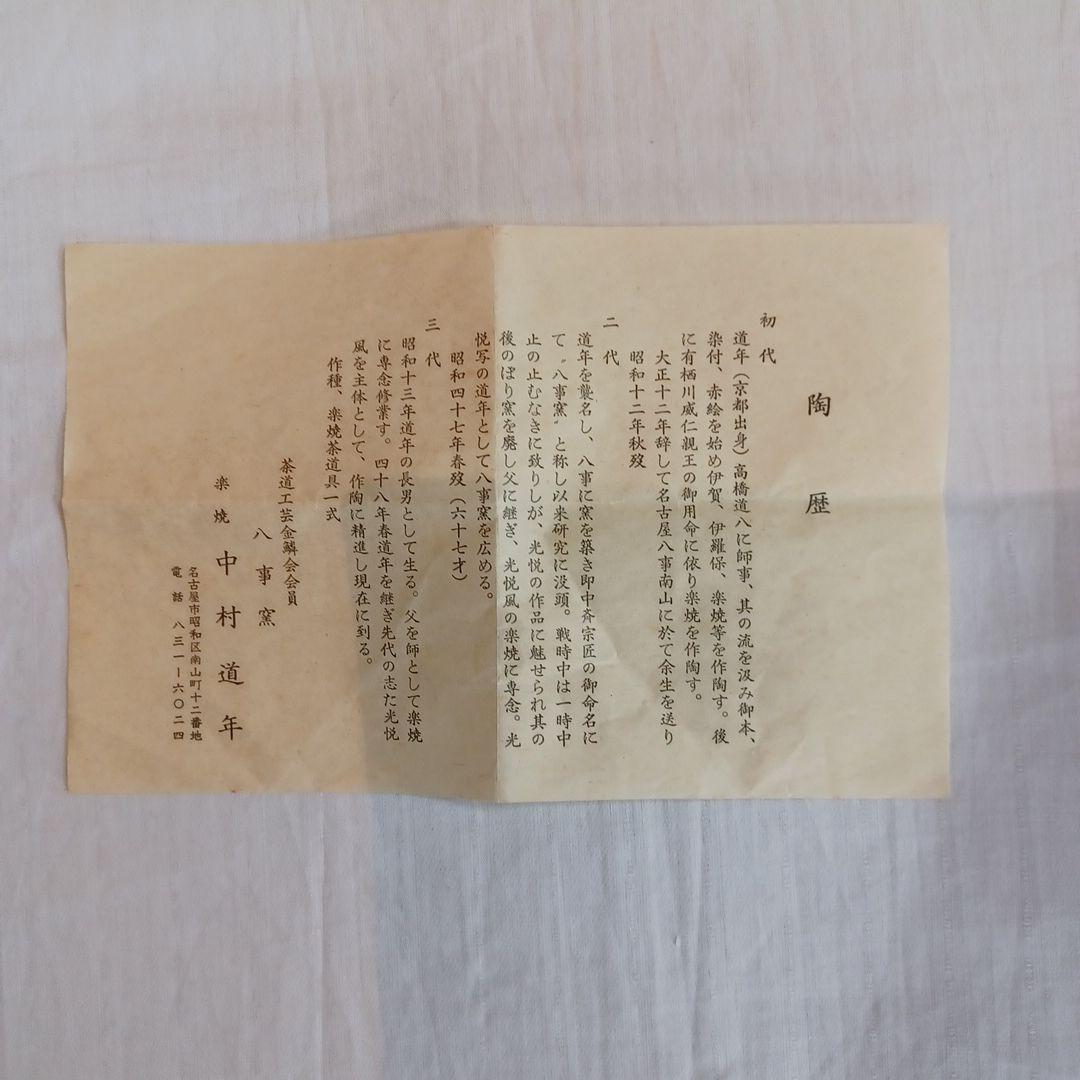 陶歴
初代
道年（京都出身）高橋道八に師事、其の流を汲み御本、
染付、赤絵を始め伊賀、伊羅保、楽焼等を作陶す。後
に有栖川威仁親王の御用命に依り楽焼を作陶す。
大正十二年辞して名古屋八事南山に於て余生を送り
昭和十二年秋歿
二代
道年を襲名し、八事に窯を築き即中斉宗匠の御命名に
て〝八事窯〟と称し以来研究に没頭。戦時中は一時中
止の止むなきに致りしが、光悦の作品に魅せられ其の
後のぼり窯を廃し父に継ぎ、光悦風の楽焼に専念。光
悦写の道年として八事窯を広める。
昭和四十七年春歿（六十七才）
三代
昭和十三年道年の長男として生る。父を師として楽焼
に専念修業す。四十八年春道年を継ぎ先代の志た光悦
風を主体として、作陶に精進し現在に到る。
作種、楽焼茶道具一式
茶道工芸金鱗会会員
八事窯
楽焼 中村道年
名古屋市昭和区南山町十二番地
電話 八三一ー六〇二四